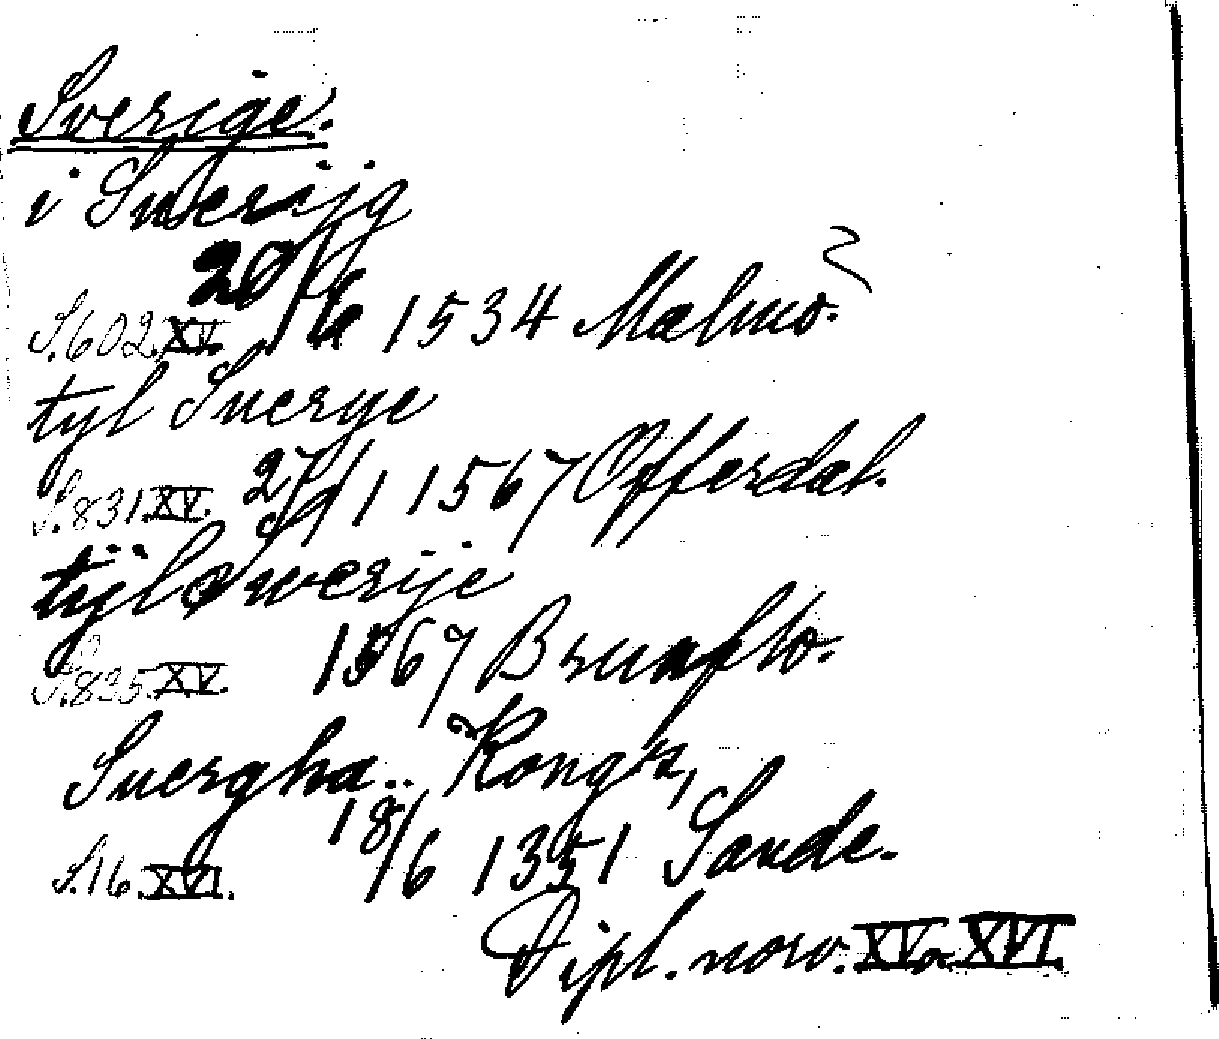 Sverige.
i Swerijg
S. 602. XV. 20/6 1534 Malmo.
tyl Suerge
S. 831 XV. 27/1 1567 Offerdal.
tijl Swerije
S. 835. XV. 1567 Brunflo.
Suergha.. Kongx,
S. 16. XVI. 18/6 1351 Sande.
Dipl. norv. XV a XVI.